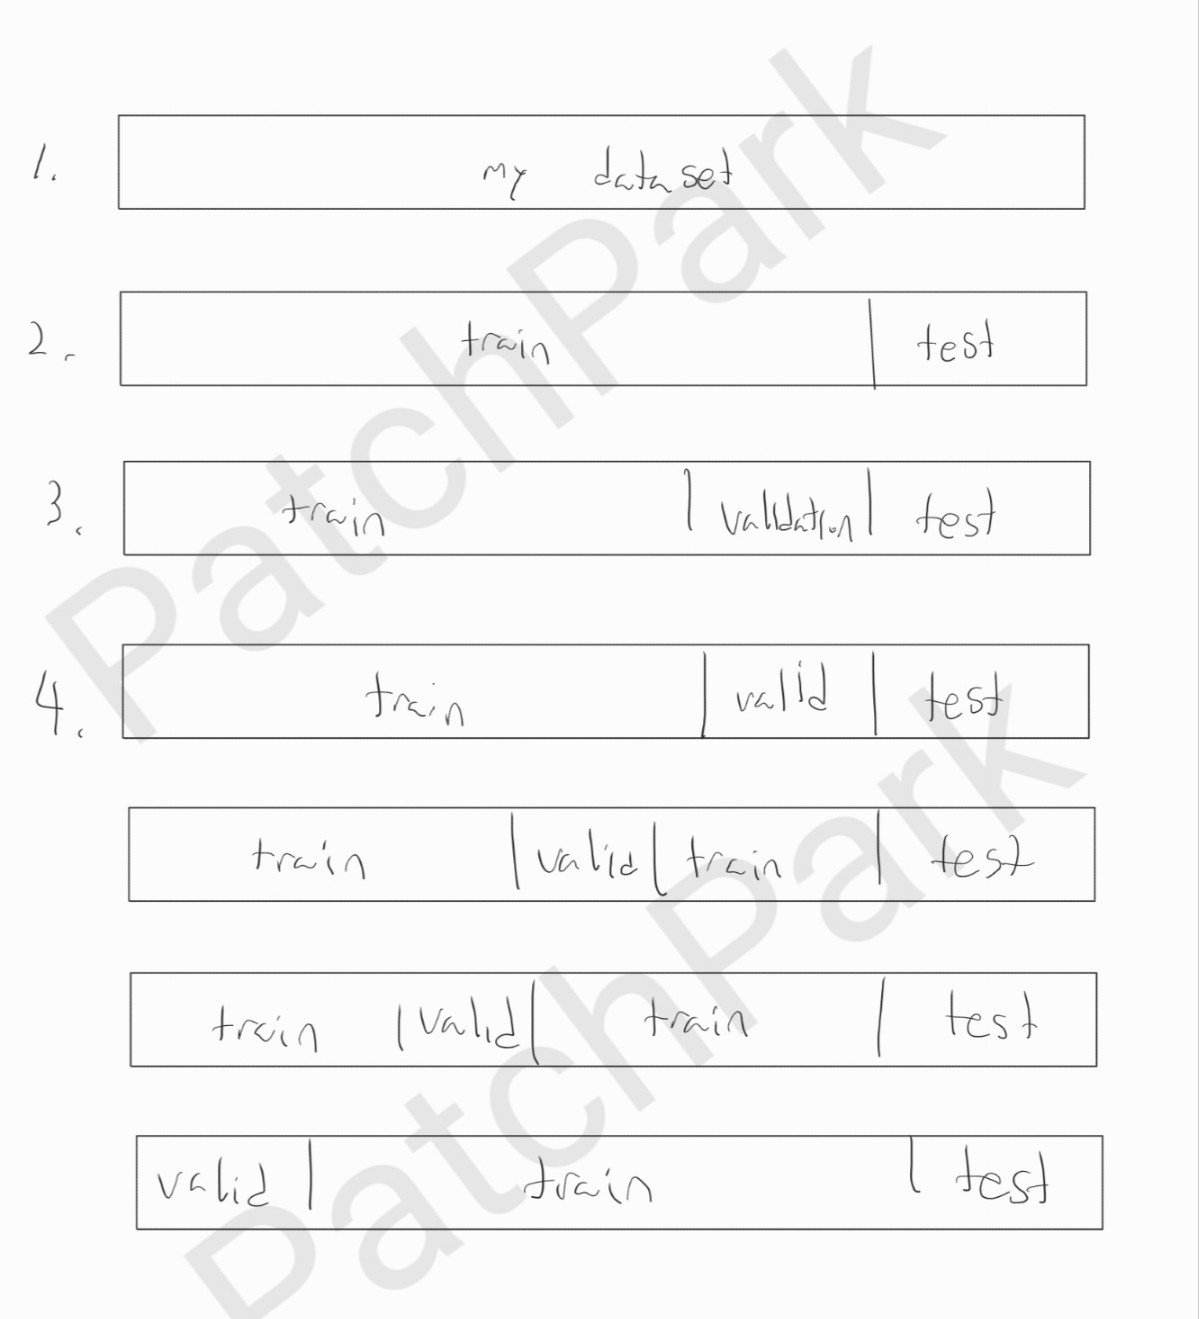 1. my dataset
2. train | test
3. train | validation | test
4. train | valid | test
train | valid | train | test
train | valid | train | test
valid | train | test
PatchPark
PatchPark